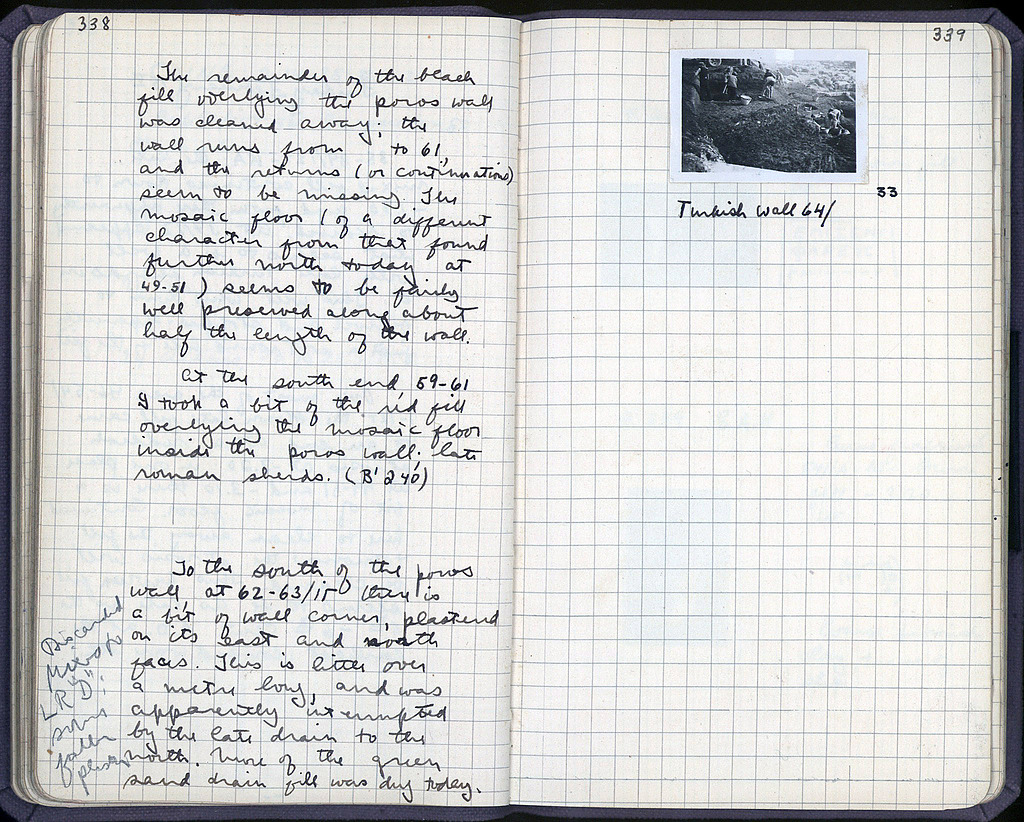 338
The remainder of the beach
fill overlying the poros wall
was cleaned away; the
wall runs from to 61,
and the returns (or continuations)
seem to be missing. The
mosaic floor (of a different
character from that found
further north today at
49-51) seems to be fairly
well preserved along about
half the length of the wall.
At the south end, 59-61
I took a bit of the red fill
overlying the mosaic floor
inside the poros wall: late
roman sherds. (B'240)
To the south of the poros
wall, at 62-63/ there is
a bit of wall corner, plastered
on its east and north
faces. This is little over
a metre long, and was
apparently interrupted
by the late drain to the
north. More of the green
sand drain fill was dug today.
Discarded
LR "D"
some
fallen
339
33
Turkish wall 64/